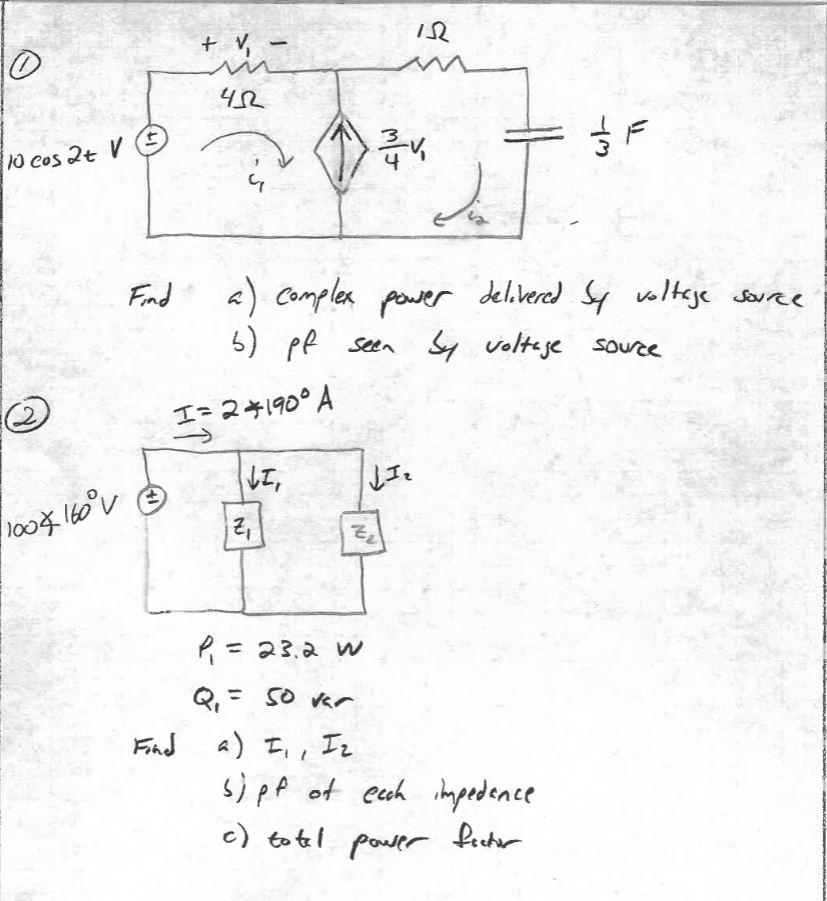 ①
+ V₁ −
1Ω
4Ω
10 cos 2t V
±
i₁
3/4 V₁
1/3 F
i₂
Find a) complex power delivered by voltage source
b) pf seen by voltage source
②
I = 2∡190° A
100∡160° V
±
↓I₁
↓I₂
Z₁
Z₂
P₁ = 23.2 W
Q₁ = 50 var
Find a) I₁, I₂
b) pf of each impedance
c) total power factor